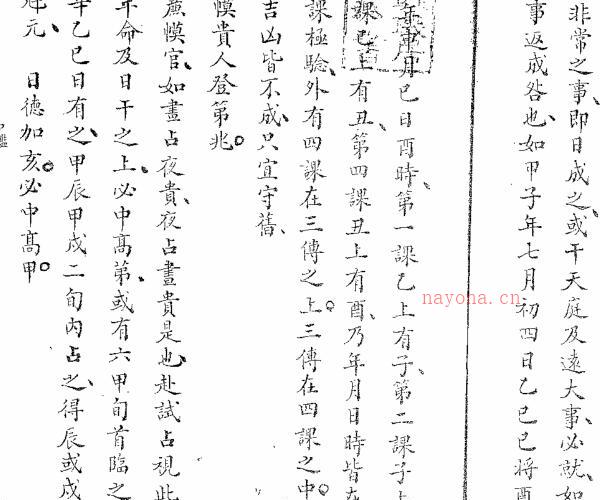 非常之事、即日成之、或干天庭及遠大事、必就、如
事返成咎也、如甲子年七月初四日乙巳巳將酉
月巳日酉時、第一課乙上有子、第二課子上
課巳上有丑、第四課丑上有酉、乃年月日時皆在
課極驗、外有四課在三傳之上。三傳在四課之中。
吉凶皆不成、只宜守舊、
幙貴人登第兆。
幙官、如晝占夜貴、夜占晝貴是也、赴試占視此
年命及日干之上、必中高第、或有六甲旬首臨之
辛乙巳日有之、甲辰甲戌二旬內占之、得辰或戌
元、 日德加亥。必中高甲。
nayona.cn